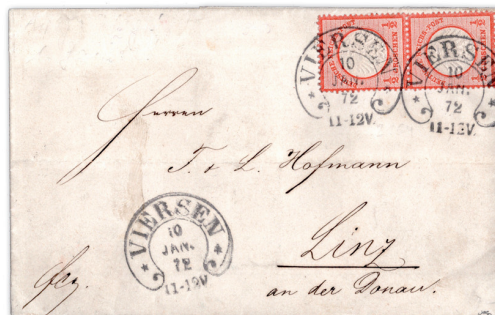 VIERSEN
10
JAN.
72
11-12V.
VIERSEN
10
JAN.
72
11-12V.
Herren
F. & L. Hofmann
VIERSEN
10
JAN.
72
11-12V
Linz
an der Donau.